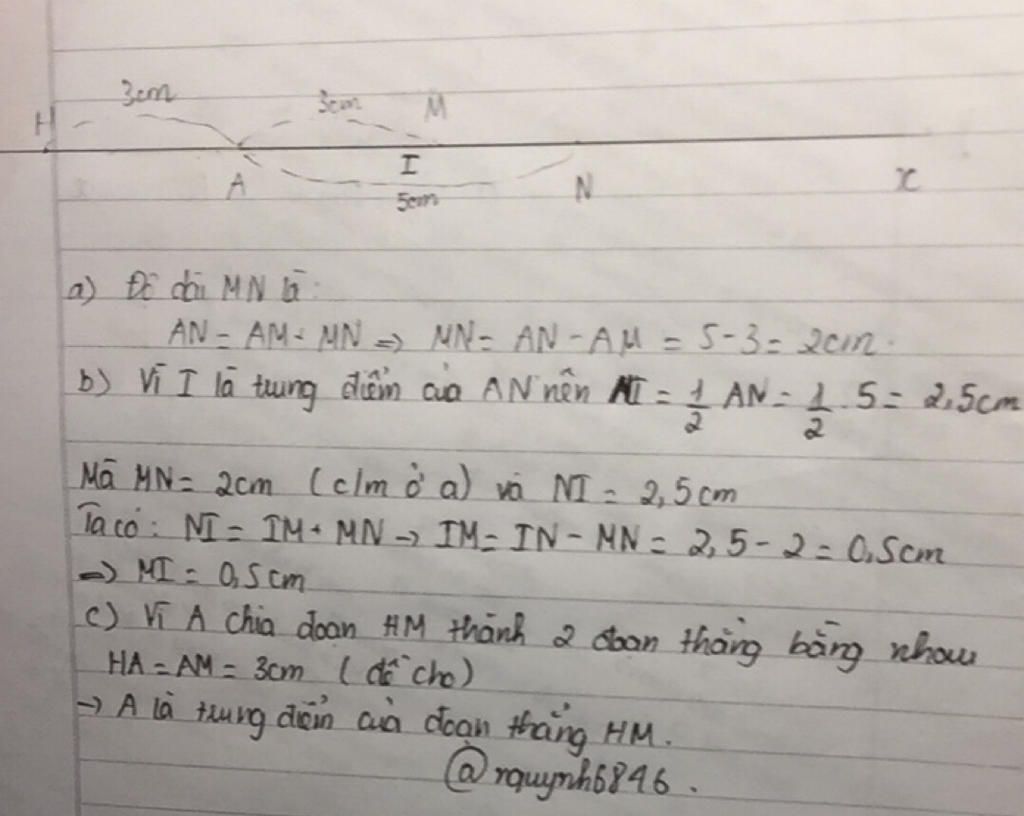 3cm 3cm M
H
I
A 5cm N x
a) Độ dài MN là:
AN = AM + MN => MN = AN - AM = 5 - 3 = 2cm.
b) Vì I là trung điểm của AN nên NI = 1/2 AN = 1/2 . 5 = 2,5cm
Mà MN = 2cm (c/m ở a) và NI = 2,5cm
Ta có: NI = IM + MN → IM = IN - MN = 2,5 - 2 = 0,5cm
=> MI = 0,5cm
c) Vì A chia đoạn HM thành 2 đoạn thẳng bằng nhau
HA = AM = 3cm (đề cho)
→ A là trung điểm của đoạn thẳng HM.
@nquynh6846.